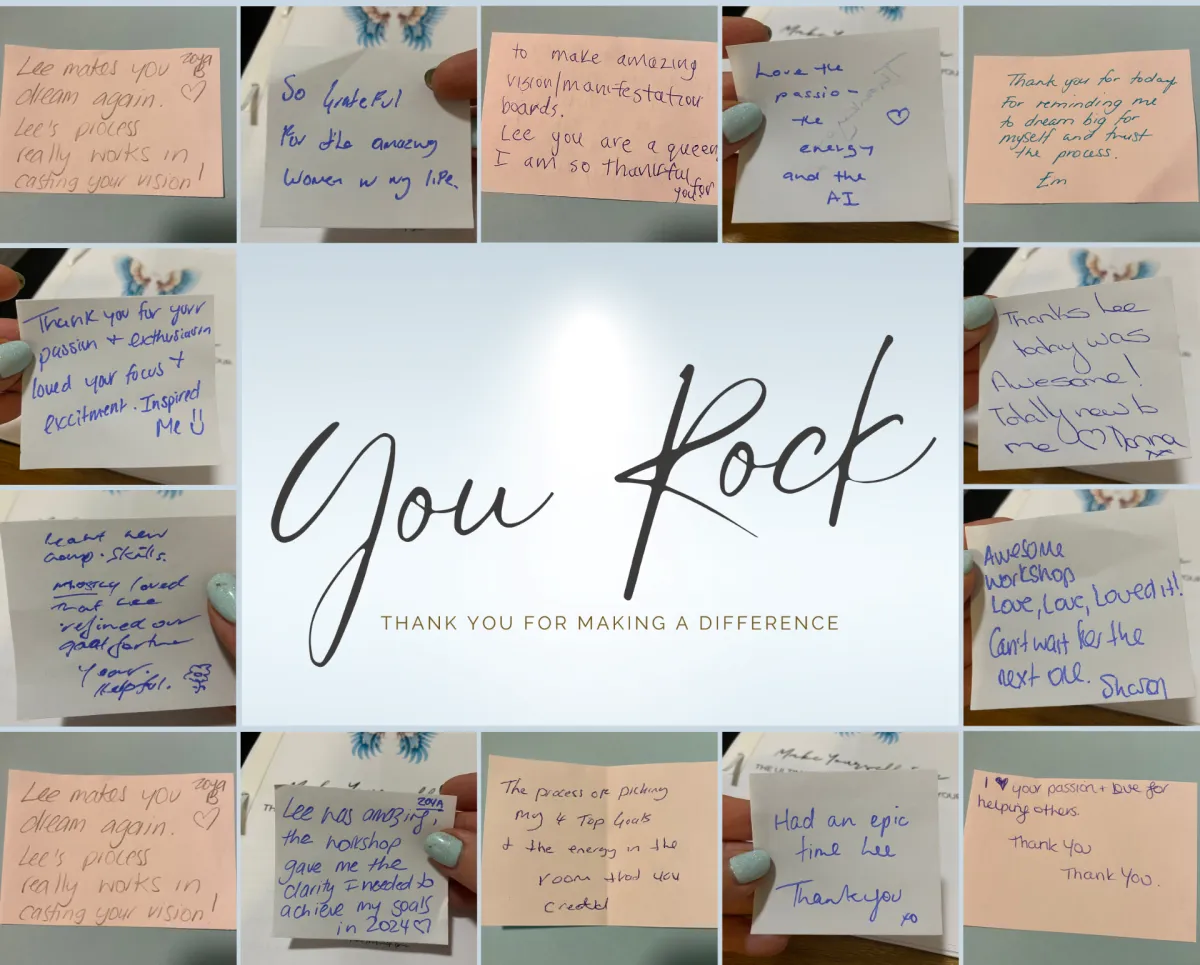 Lee makes you
ZOYA
B
dream again.
Lee's process
really works in
casting your vision!
So Grateful
For the amazing
Women in my life.
to make amazing
vision/manifestation
boards.
Lee you are a queen
I am so thankful for
you.
Love the
passion
the
energy
and the
AI
Thank you for today
For reminding me
to dream big for
myself and trust
the process.
Em
Thank you for your
passion + exthusiasm
loved your focus +
excitment. Inspired
Me
You Rock
THANK YOU FOR MAKING A DIFFERENCE
Thanks Lee
today was
Awesome!
Totally new to
me Donna
xx
Learnt new
comp. skills.
mostly loved
that Lee
refined our
goal for the
Year.
Helpful.
Awesome
workshop
Love, Love, Loved it!
Can't wait for the
next one.
Sharon
Lee makes you
ZOYA
B
dream again.
Lee's process
really works in
casting your vision!
ZOYA
Lee was amazing,
the workshop
gave me the
clarity I needed to
achieve my goals
in 2024
The process of picking
My 4 Top Goals
+ the energy in the
room that you
created
Make Yourself
THE ULT
Had an epic
time Lee
Thankyou
xo
I ♥ your passion + love for
helping others.
Thank You
Thank You.